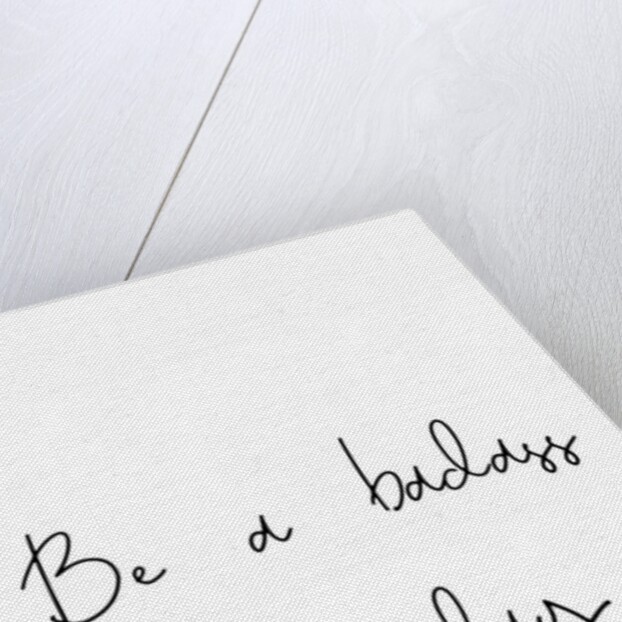 Be a badass